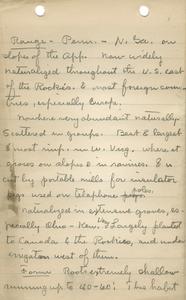 Range - Penn. - N. Ga. on
slopes of the App. Now widely
naturalized throughout the U.S. east
of the Rockies, & most foreign coun-
tries, especially Europe.
Nowhere very abundant naturally.
Scattered in groups. Best & largest
& most imp. in W. Virg. where it
grows on slopes & in ravines. & is
cut by portable mills for insulator
pegs used on telephone poles.
naturalized in extensive groves, es-
pecially Ohio - Ken. Largely planted
to Canada & the Rockies, and under
irrigation west of them.
Form: Root extremely shallow
running up to 40-60'. This habit